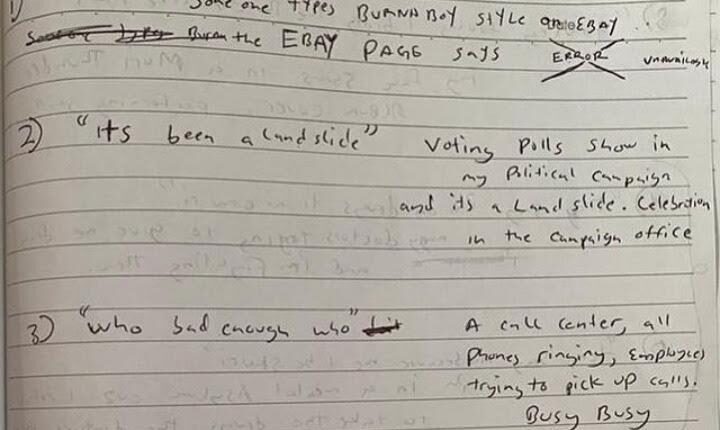 1) Some one types BURNA BOY style on EBAY
But on the EBAY PAGE says ERROR
2) "its been a landslide" Voting Polls show in
my Political Campaign
and its a Land slide. Celebration
in the Campaign office
3) "who bad enough who" A call center, all
Phones ringing, Employees
trying to pick up calls.
Busy Busy